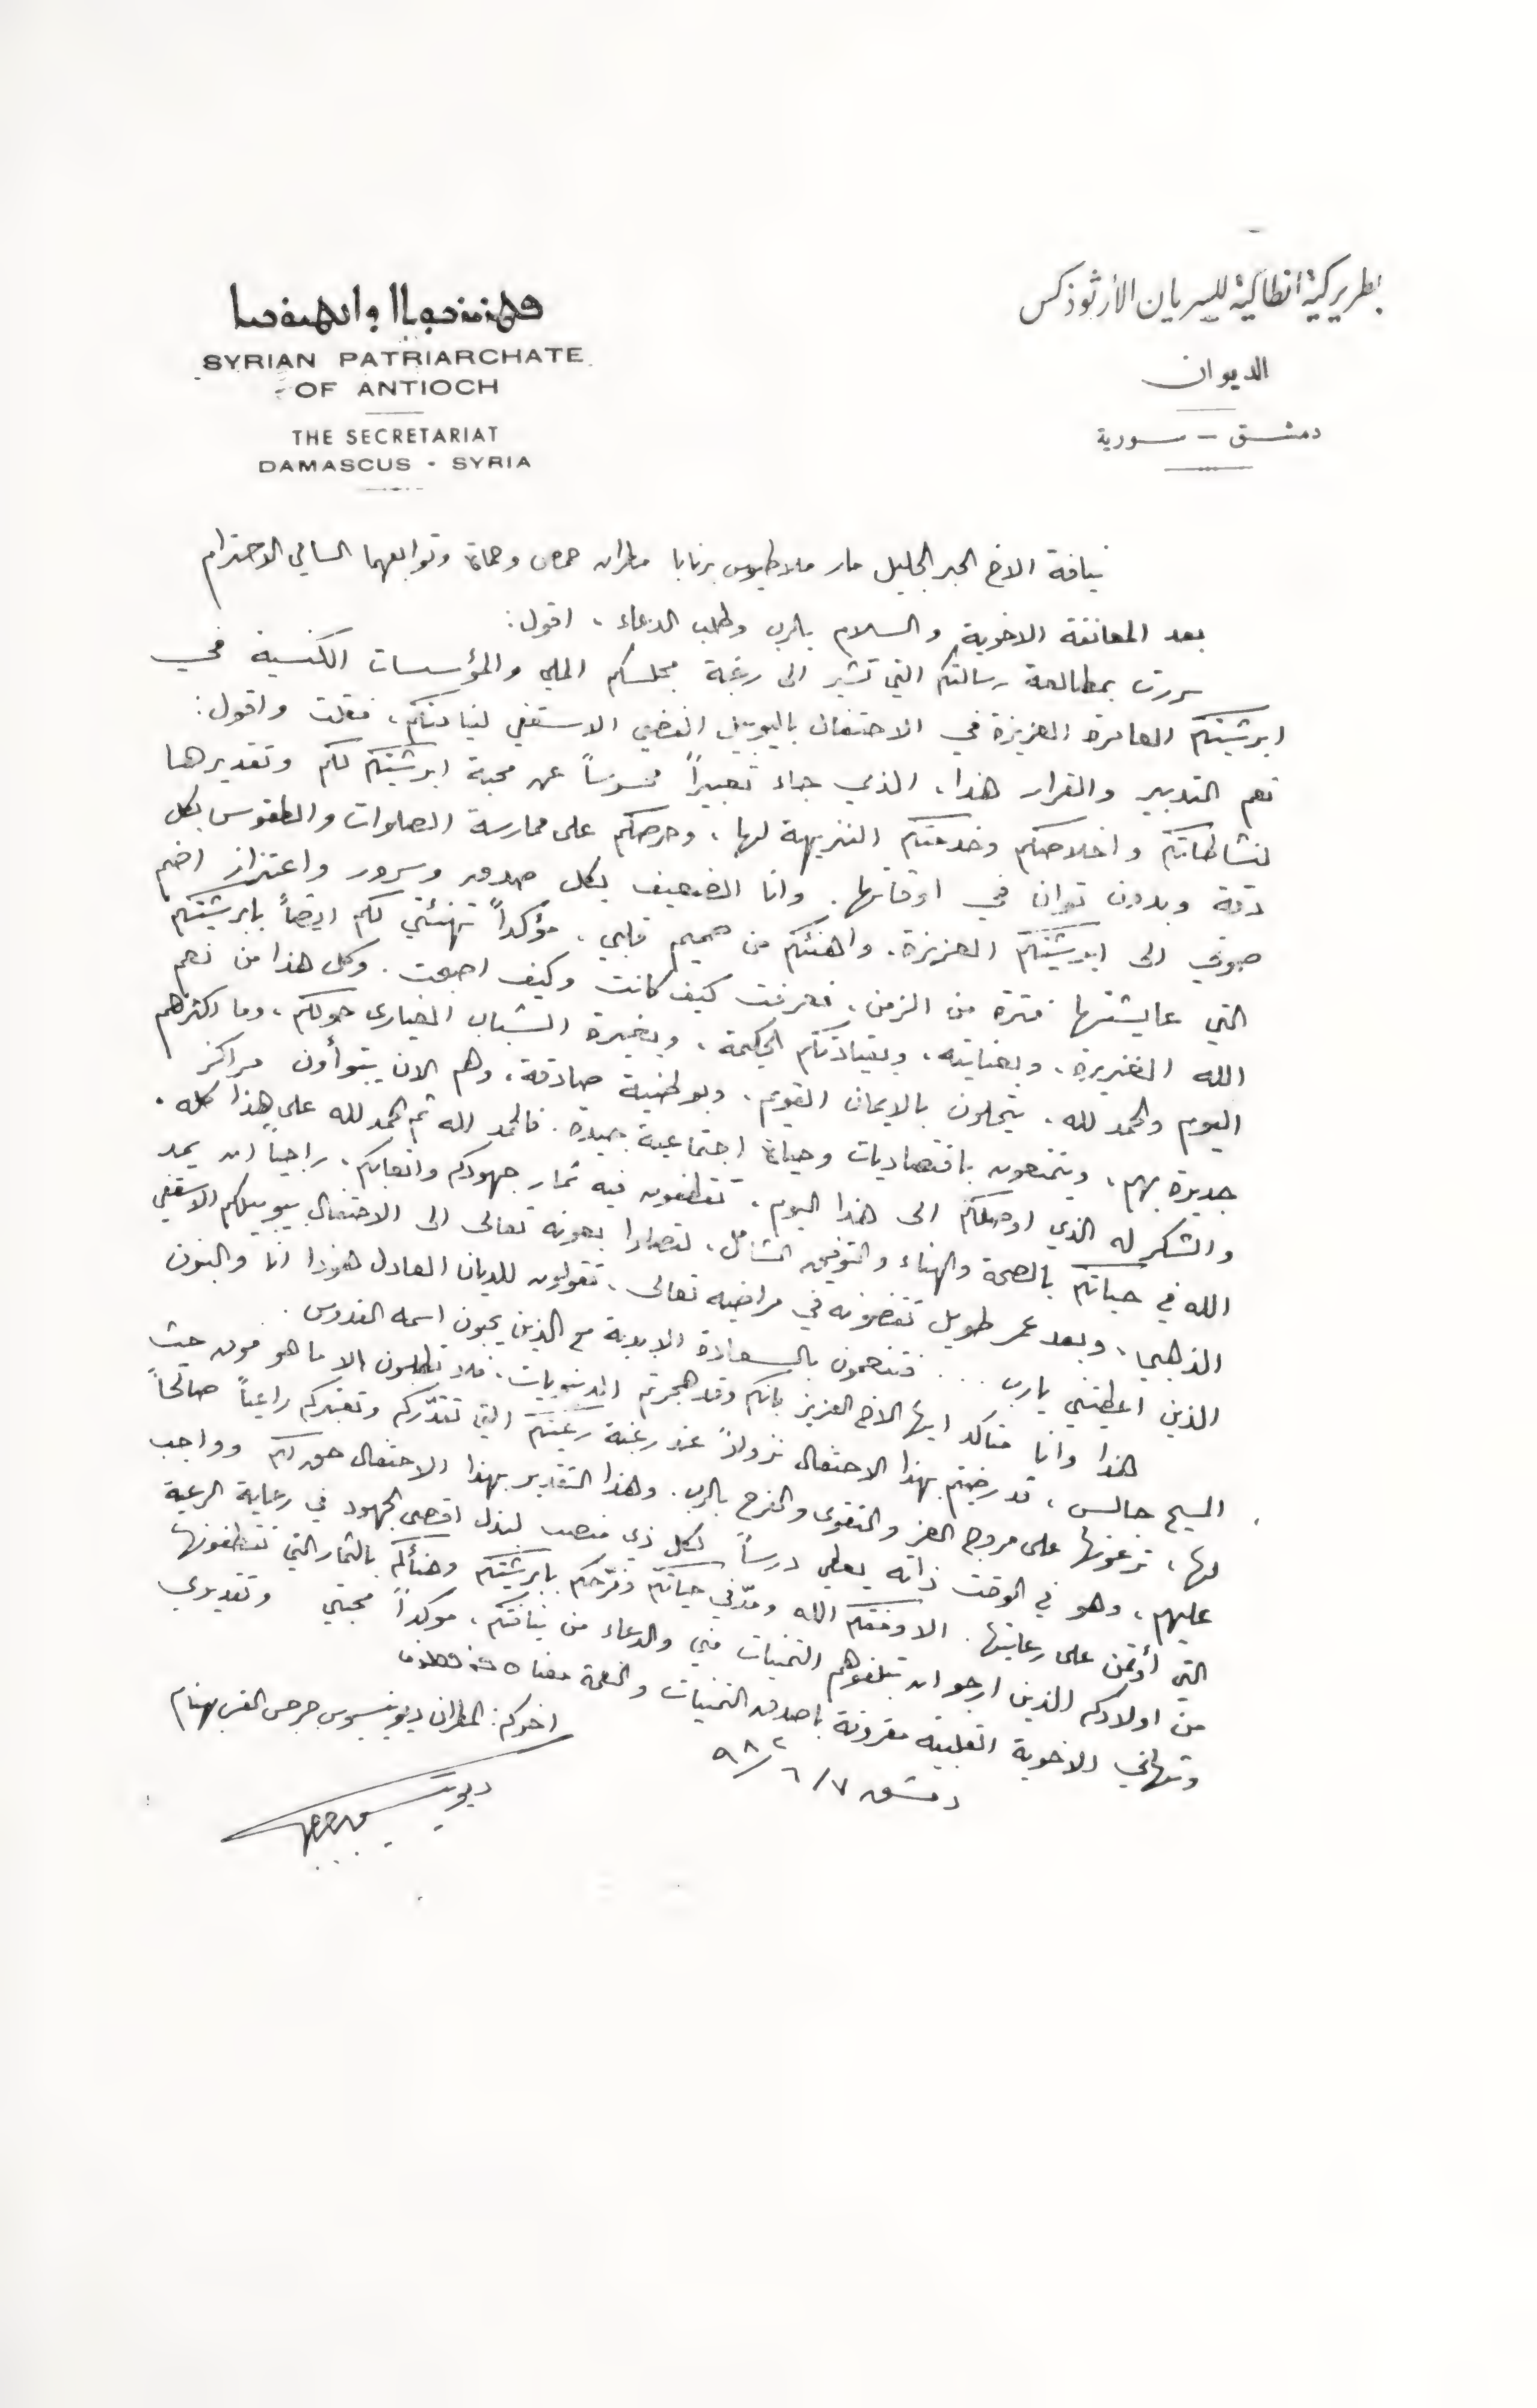 بطريركية انطاكية للسريان الأرثوذكس
الديوان
دمشق - سورية
SYRIAN PATRIARCHATE
OF ANTIOCH
THE SECRETARIAT
DAMASCUS - SYRIA
نيافة الاخ الحبر الجليل مار ملاطيوس برنابا مطران حمص وحماة وتوابعهما السامي الاحترام
بعد المعانقة الاخوية والسلام بالرب وطلب الدعاء ، اقول :
سررت بمطالعة رسالتكم التي تشير الى رغبة مجلسكم الملي والمؤسسات الكنسية في
ابرشيتكم العامرة العزيزة في الاحتفال باليوبيل الفضي الاسقفي لنيافتكم ، فقلت واقول :
نعم التدبير والقرار هذا ، الذي جاء تعبيراً محسوساً عن محبة ابرشيتكم لكم وتقديرها
لنشاطاتكم واخلاصكم وخدمتكم النزيهة لها ، وحرصكم على ممارسة الصلوات والطقوس بكل
دقة وبدون توان في اوقاتها . وانا الضعيف بكل صدق وسرور واعتزاز اضم
صوتي الى ابرشيتكم العزيزة ، واهنئكم من صميم قلبي ، مؤكداً تهنئتي لكم ايضاً بابرشيتكم
التي عايشتها فترة من الزمن ، فعرفت كيف كانت وكيف اصبحت . وكل هذا من نعم
الله الغزيرة ، وبعنايته ، وبقيادتكم الحكيمة ، وبغيرة الشباب الغيارى حولكم ، وما اكثرهم
اليوم والحمد لله ، يتحلون بالايمان القويم ، وبوطنية صادقة ، وهم الان يتبوأون مراكز
جديرة بهم ، ويتمتعون باقتصاديات وحياة اجتماعية جيدة . فالحمد لله ثم الحمد لله على هذا كله .
والشكر له الذي اوصلكم الى هذا اليوم ، تقتطفون فيه ثمار جهودكم واتعابكم ، راجياً ان يمد
الله في حياتكم بالصحة والهناء والتوفيق الشامل ، لتصلوا بعونه تعالى الى الاحتفال بيوبيلكم الاسقفي
الذهبي ، وبعد عمر طويل تقضونه في مراضيه تعالى ، تقولون للديان العادل هوذا انا والبنون
الذين اعطيتني يارب ... فتنعمون بالسعادة الابدية مع الذين يحبون اسمه القدوس .
هذا وانا متأكد ايها الاخ العزيز بانكم وقد هجرتم الدنيويات ، فلا تطلبون الا ما هو فوق حيث
المسيح جالس ، قد رضيتم بهذا الاحتفال نزولاً عند رغبة رعيتكم التي تقدّركم وتعتبركم راعياً صالحاً
لها ، ترعونها على مروج العز والتقوى والفرح بالرب . وهذا التقدير بهذا الاحتفال حق لكم وواجب
عليهم ، وهو في الوقت ذاته يعطي درساً لكل ذي منصب لبذل اقصى الجهود في رعاية الرعية
التي أؤتمن على رعايتها . الا وفقكم الله ومدّ في حياتكم وفرّحكم بابرشيتكم وهنأكم بالثمار التي تقتطفونها
من اولادكم الذين ارجو ان تبلغوهم التمنيات مني والدعاء من نيافتكم ، مؤكداً محبتي وتقديري
وتهاني الاخوية القلبية مقرونة باصدق التمنيات والنعمة معنا
دمشق ٧ / ٦ / ٩٨
اخوكم : المطران ديونيسيوس جرجس القس بهنام